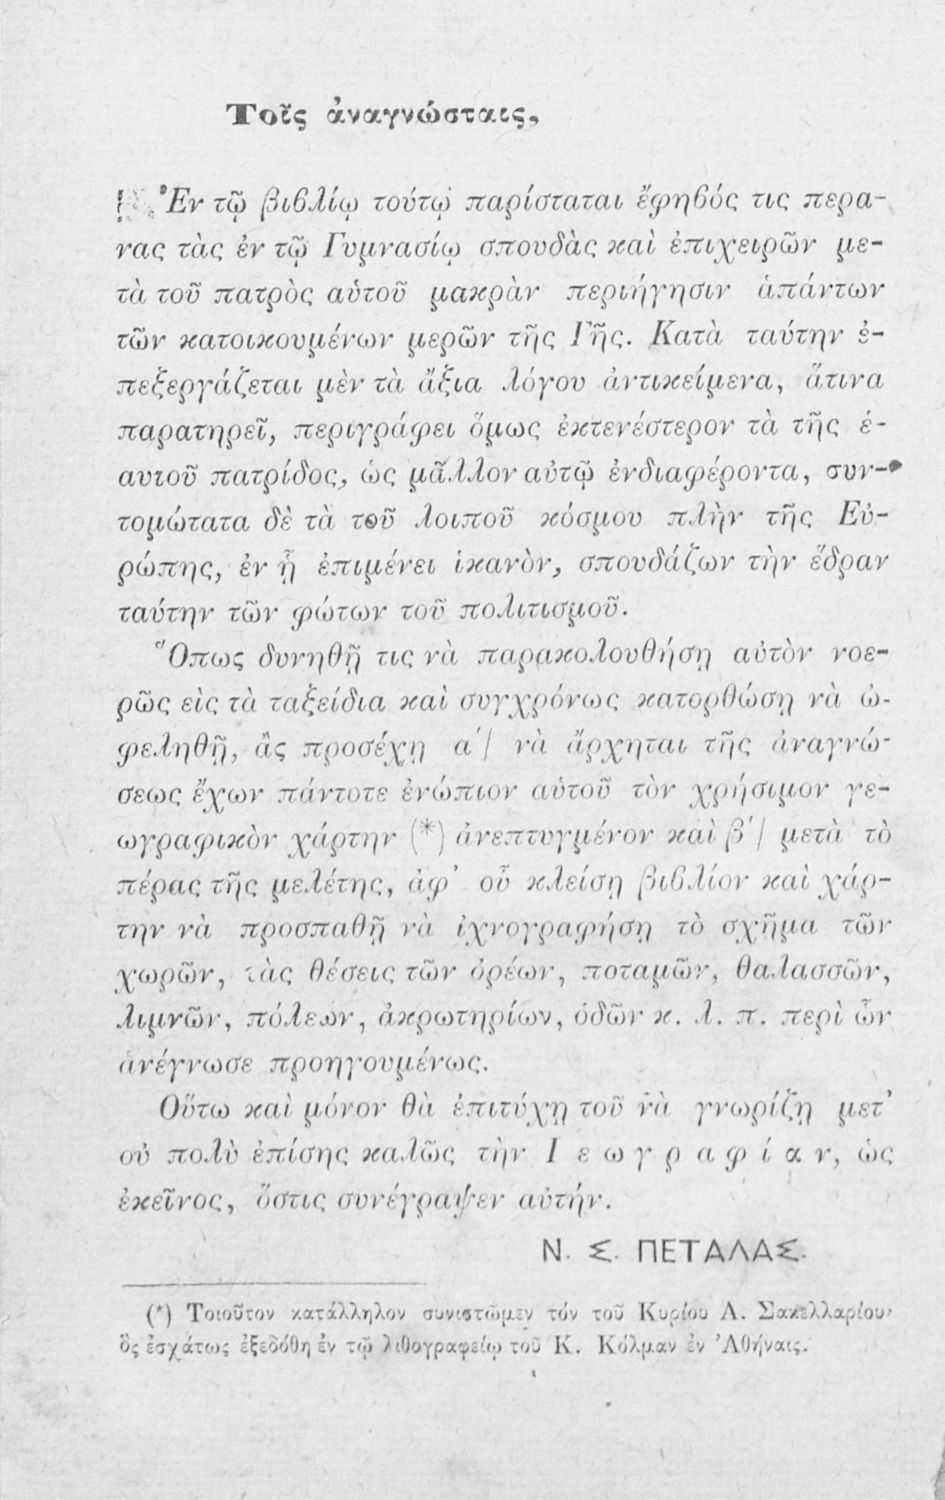 Τοῖς ἀναγνώσταις,
Ἐν τῷ βιβλίῳ τούτῳ παρίσταται ἔφηβός τις περα-
νας τὰς ἐν τῷ Γυμνασίῳ σπουδὰς καὶ ἐπιχειρῶν με-
τὰ τοῦ πατρὸς αὑτοῦ μακρὰν περιήγησιν ἁπάντων
τῶν κατοικουμένων μερῶν τῆς Γῆς. Κατὰ ταύτην ἐ-
πεξεργάζεται μὲν τὰ ἄξια λόγου ἀντικείμενα, ἅτινα
παρατηρεῖ, περιγράφει ὅμως ἐκτενέστερον τὰ τῆς ἑ-
αυτοῦ πατρίδος, ὡς μᾶλλον αὐτῷ ἐνδιαφέροντα, συν-
τομώτατα δὲ τὰ τοῦ λοιποῦ κόσμου πλὴν τῆς Εὐ-
ρώπης, ἐν ᾗ ἐπιμένει ἱκανὸν, σπουδάζων τὴν ἕδραν
ταύτην τῶν φώτων τοῦ πολιτισμοῦ.
Ὅπως δυνηθῇ τις νὰ παρακολουθήσῃ αὐτὸν νοε-
ρῶς εἰς τὰ ταξείδια καὶ συγχρόνως κατορθώσῃ νὰ ὠ-
φεληθῇ, ἂς προσέχῃ α΄/ νὰ ἄρχηται τῆς ἀναγνώ-
σεως ἔχων πάντοτε ἐνώπιον αὑτοῦ τὸν χρήσιμον γε-
ωγραφικὸν χάρτην (*) ἀνεπτυγμένον καὶ β΄/ μετὰ τὸ
πέρας τῆς μελέτης, ἀφ᾿ οὗ κλείσῃ βιβλίον καὶ χάρ-
την νὰ προσπαθῇ νὰ ἰχνογραφήσῃ τὸ σχῆμα τῶν
χωρῶν, τὰς θέσεις τῶν ὀρέων, ποταμῶν, θαλασσῶν,
λιμνῶν, πόλεων, ἀκρωτηρίων, ὁδῶν κ. λ. π. περὶ ὧν
ἀνέγνωσε προηγουμένως.
Οὕτω καὶ μόνον θὰ ἐπιτύχῃ τοῦ νὰ γνωρίζῃ μετ᾿
οὐ πολὺ ἐπίσης καλῶς τὴν Γεωγραφίαν, ὡς
ἐκεῖνος, ὅστις συνέγραψεν αὐτήν.
Ν. Σ. ΠΕΤΑΛΑΣ.
(*) Τοιοῦτον κατάλληλον συνιστῶμεν τὸν τοῦ Κυρίου Α. Σακελλαρίου·
ὃς ἐσχάτως ἐξεδόθη ἐν τῷ λιθογραφείῳ τοῦ Κ. Κόλμαν ἐν Ἀθήναις.